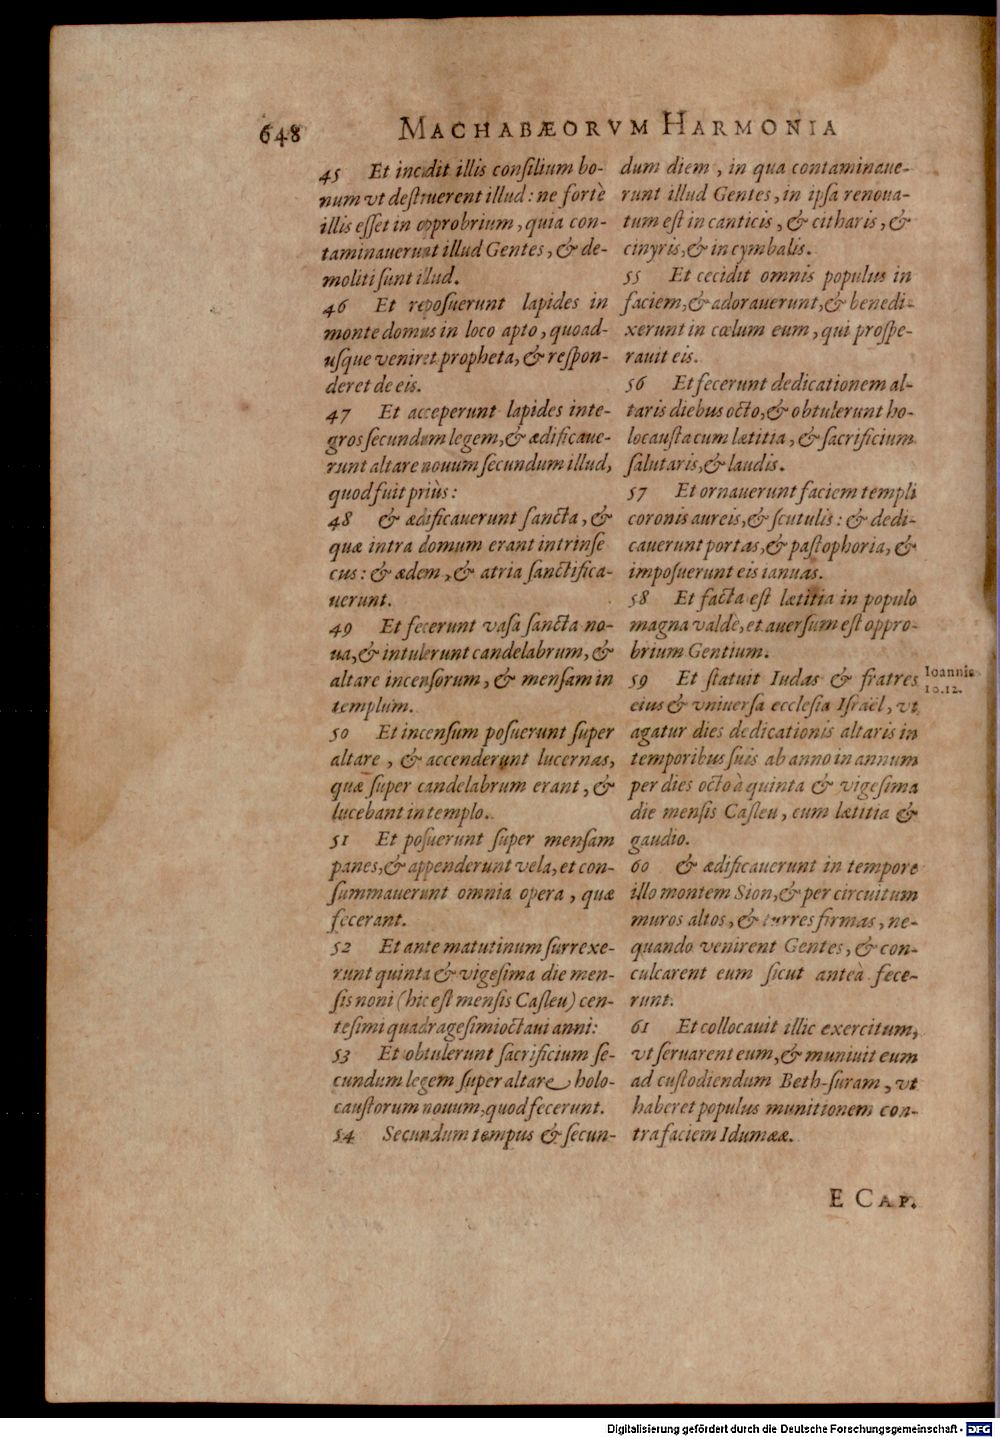 648
MACHABÆORVM HARMONIA
45 Et incidit illis consilium bo-
num vt destruerent illud: ne fortè
illis esset in opprobrium, quia con-
taminauerunt illud Gentes, & de-
moliti sunt illud.
46 Et reposuerunt lapides in
monte domus in loco apto, quoad-
usque veniret propheta, & respon-
deret de eis.
47 Et acceperunt lapides inte-
gros secundum legem, & ædificaue-
runt altare nouum secundum illud,
quod fuit priùs:
48 & ædificauerunt sancta, &
quæ intra domum erant intrinse
cus: & ædem, & atria sanctifica-
uerunt.
49 Et fecerunt vasa sancta no-
ua, & intulerunt candelabrum, &
altare incensorum, & mensam in
templum.
50 Et incensum posuerunt super
altare, & accenderunt lucernas,
quæ super candelabrum erant, &
lucebant in templo.
51 Et posuerunt super mensam
panes, & appenderunt vela, et con-
summauerunt omnia opera, quæ
fecerant.
52 Et ante matutinum surrexe-
runt quinta & vigesima die men-
sis noni (hic est mensis Casleu) cen-
tesimi quadragesimioctaui anni:
53 Et obtulerunt sacrificium se-
cundum legem super altare holo-
caustorum nouum, quod fecerunt.
54 Secundum tempus & secun-
dum diem, in qua contaminaue-
runt illud Gentes, in ipsa renoua-
tum est in canticis, & citharis, &
cinyris, & in cymbalis.
55 Et cecidit omnis populus in
faciem, & adorauerunt, & benedi-
xerunt in cœlum eum, qui prospe-
rauit eis.
56 Et fecerunt dedicationem al-
taris diebus octo, & obtulerunt ho-
locausta cum lætitia, & sacrificium
salutaris, & laudis.
57 Et ornauerunt faciem templi
coronis aureis, & scutulis: & dedi-
cauerunt portas, & pastophoria, &
imposuerunt eis ianuas.
58 Et facta est lætitia in populo
magna valdè, et auersum est oppro-
brium Gentium.
59 Et statuit Iudas & fratres
eius & vniuersa ecclesia Israël, vt
agatur dies dedicationis altaris in
temporibus suis ab anno in annum
per dies octo à quinta & vigesima
die mensis Casleu, cum lætitia &
gaudio.
60 & ædificauerunt in tempore
illo montem Sion, & per circuitum
muros altos, & turres firmas, ne-
quando venirent Gentes, & con-
culcarent eum sicut anteà fece-
runt.
61 Et collocauit illic exercitum,
vt seruarent eum, & muniuit eum
ad custodiendum Beth-suram, vt
haberet populus munitionem con-
tra faciem Idumææ.
Ioannis
10.12.
E CAP.
Digitalisierung gefördert durch die Deutsche Forschungsgemeinschaft - DFG